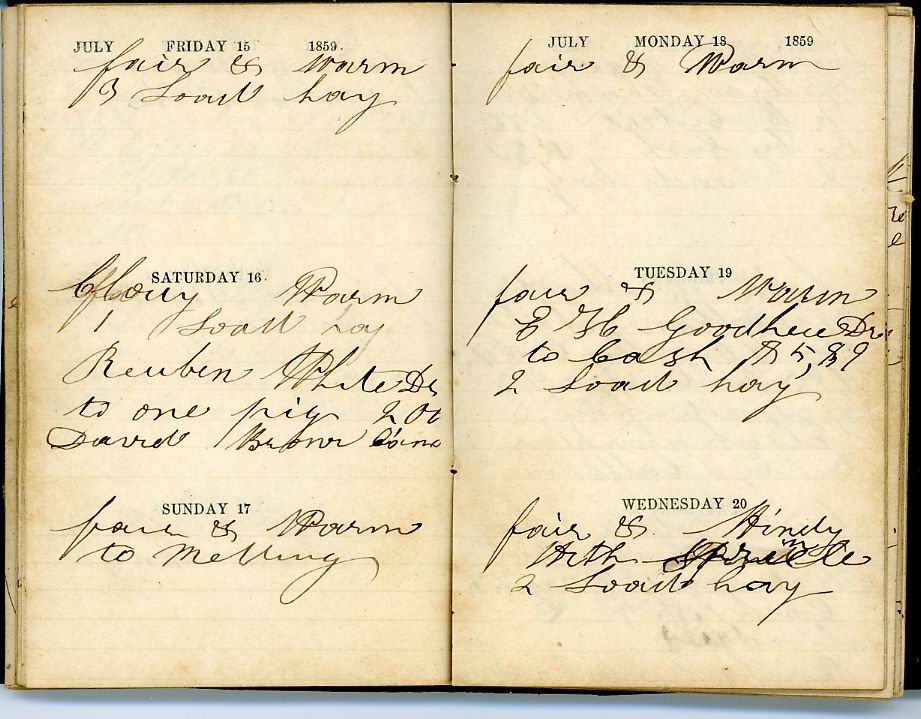 JULY FRIDAY 15 1859.
fair & Warm
3 Load hay
SATURDAY 16.
Clouy Warm
1 Load hay
Reuben White Dr
to one pig 2 00
David Brown
SUNDAY 17
fair & Warm
to Metting
JULY MONDAY 18 1859
fair & Warm
TUESDAY 19
fair & Warm
E H Goodhue Dr
to Cash $ 5,89
2 Load hay
WEDNESDAY 20
fair & Windy
With
2 Load hay